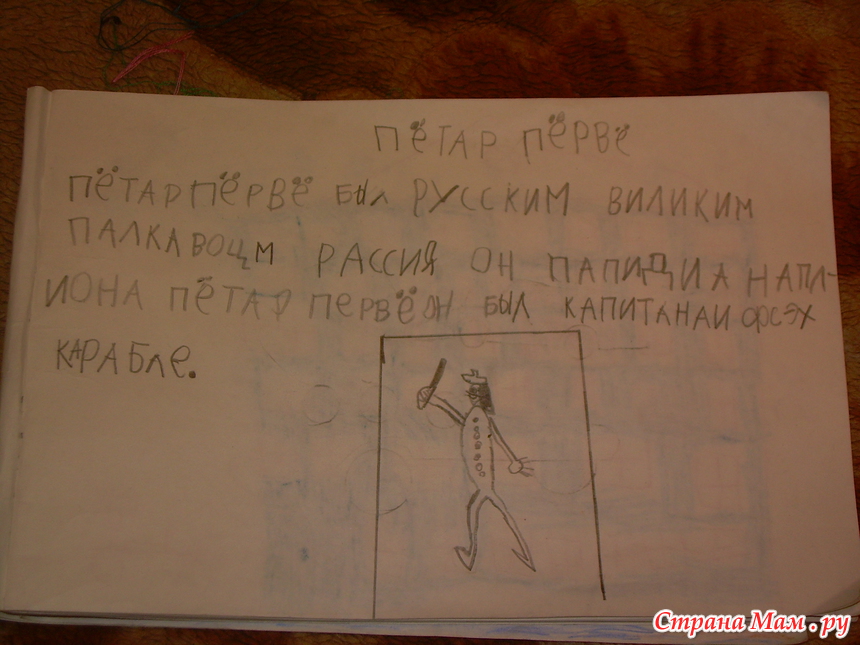 ПЁТАР ПЁРВЁ
ПЁТАР ПЁРВЁ БЫЛ РУССКИМ ВИЛИКИМ
ПАЛКАВОЦМ РАССИЯ ОН ПАПИДИА НАПЛ-
ИОНА ПЁТАР ПЕРВЁ ОН БЫЛ КАПИТАНАИ ФСЭХ
КАРАБЛЕ.
Страна Мам.ру